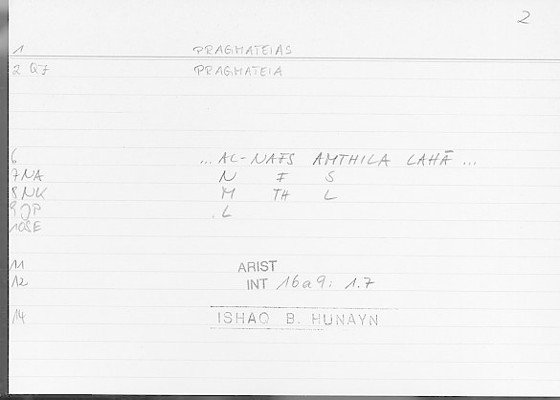 2
1 PRAGMATEIAS
2 G7 PRAGMATEIA
6 ... AL-NAFS AMTHILA LAHĀ ...
7 NA N F S
8 NK M TH L
9 JP . L
10 SE
11 ARIST
12 INT 16a9; 1.7
14 ISHAQ B. HUNAYN